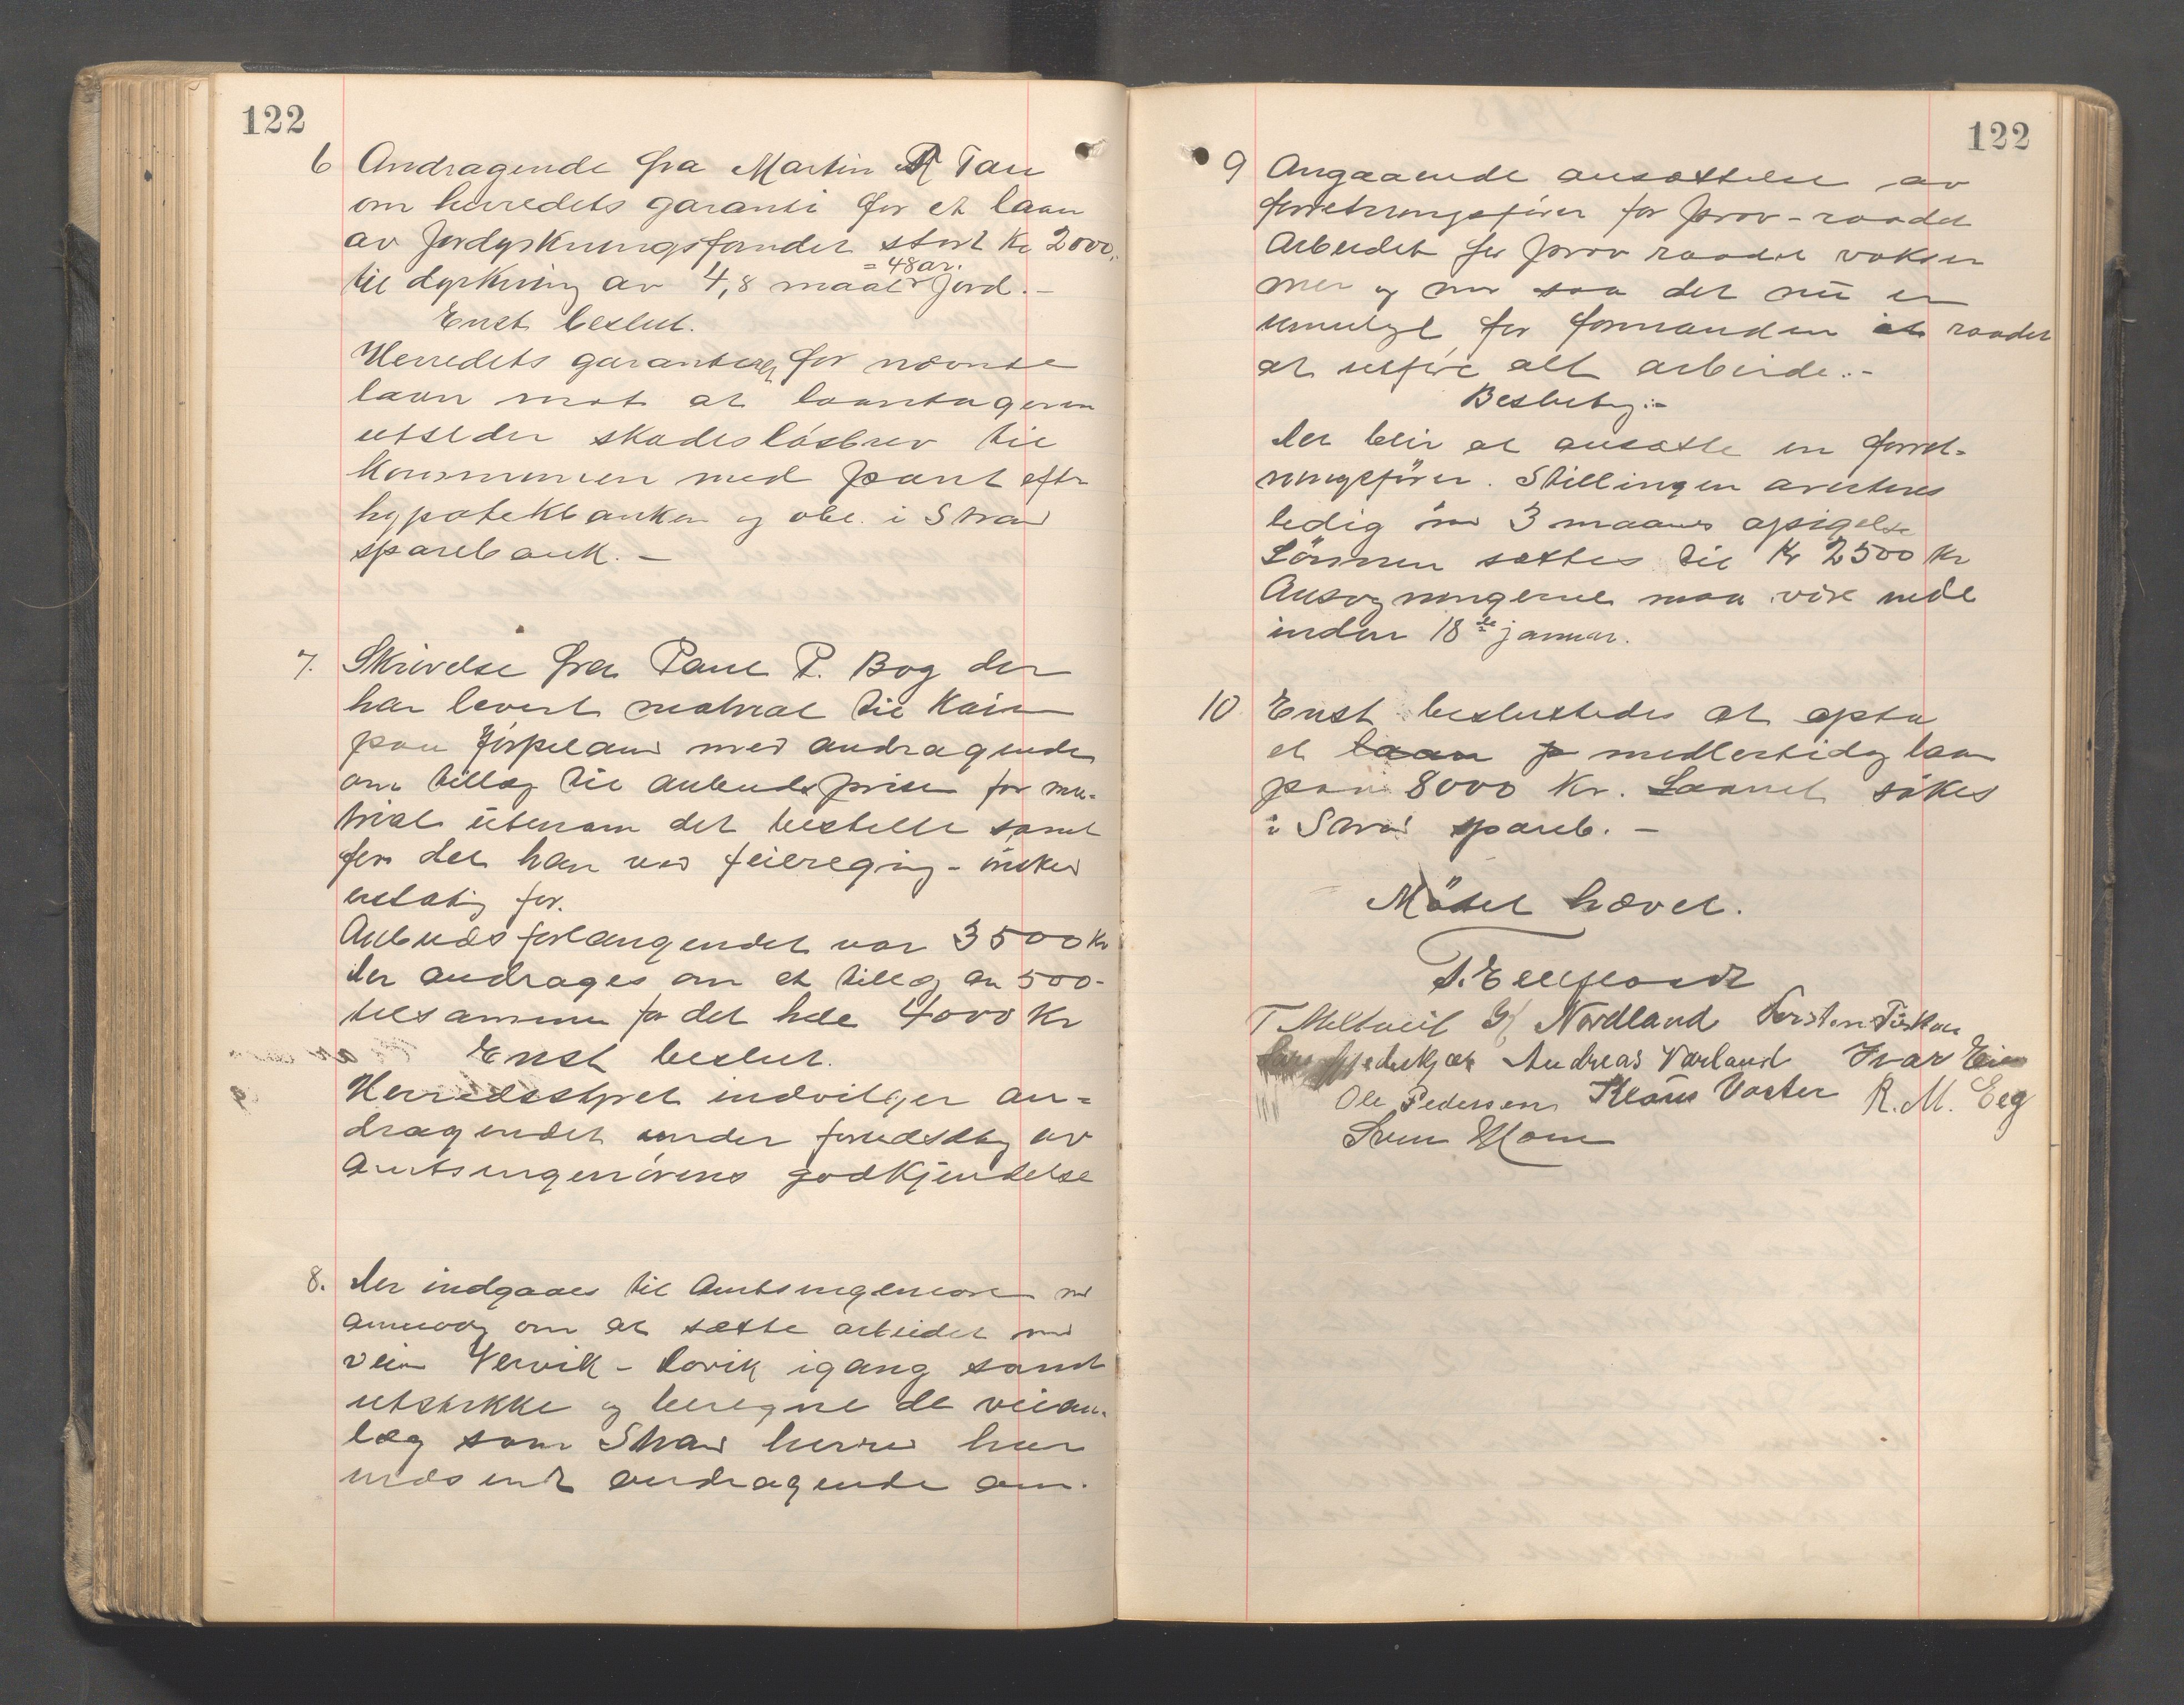 122
6 Andragende fra Martin R Tau
om herredets garanti for et laan
av Jordyrkningsfondet stort Kr 2000,
= 48 ar.
til dyrkning av 4,8 maal Jord. -
Enst beslut.
Herredets garanterer for nævnte
laan mot at laantageren
utsteder skadesløsbrev til
Kommunen med pant efter
hypotekbanken og obl. i Strand
sparebank. -
7. Skrivelse fra Paul P. Bog der
har levert matrial til Kaien
paa Jørpeland med andragende
om tillæg til anbudsprisen for ma-
trial utenom det bestelte samt
for det han ved feilregning - ønsker
erstatn for.
Anbudsforlangendet var 3500 Kr
Der andrages om et tillæg av 500-
tilsammen for det hele 4000 Kr
Enst beslut.
Herredsstyret indvilger an-
dragendet under forudsætn av
Amtsingeniørens godkjendelse
8. Der indgaaes til Amtsingeniøren med
anmodn om at sætte arbeidet med
veien Vervik - Dovik igang samt
utstikke og beregne de veian-
læg som Strand herred har
indsendt andragende om.
122
9 Angaaende ansættelse av
forretningsfører for prov-raadet
Arbeidet for prov raadet vokser
mer og mer saa det nu er
umulig for formanden i raadet
at utføre alt arbeide. -
Beslutn: -
Der blir at ansætte en forret-
ningsfører. Stillingen averteres
ledig med 3 maaneds opsigelse
Lønnen sættes til Kr 2500 Kr
Ansøgningerne maa være inde
inden 18de januar.
10 Enst besluttedes at opta
et laan p medlertidig laan
paa 8000 Kr. Laanet søkes
i Strand spareb. -
Mødet hævet.
T. Meltveit Nordland Torsten Fiskaa
Andreas Varland Ivar Eie
Ole Pedersen Klaus Voster R. M. Eeg
Sven